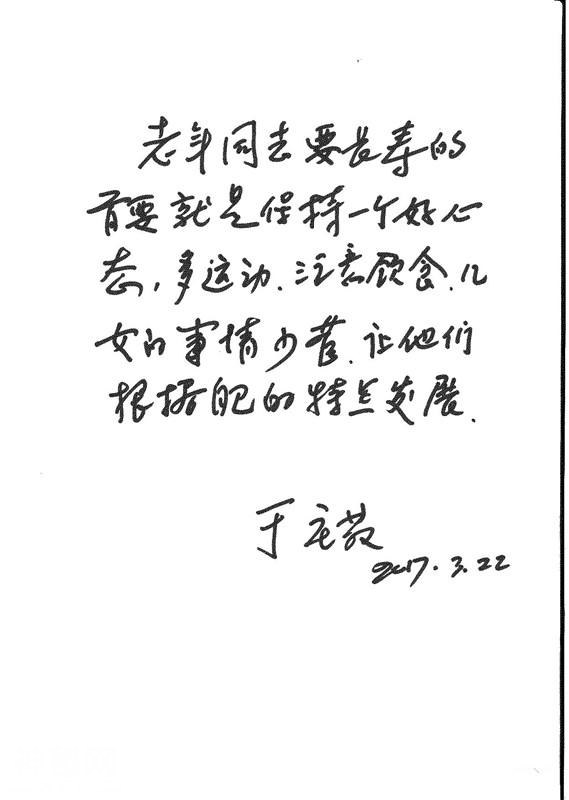 老年同志要长寿的
首要就是保持一个好心
态，多运动、注意饮食、儿
女的事情少管、让他们
根据自己的特点发展、
于庄敬
2017.3.22